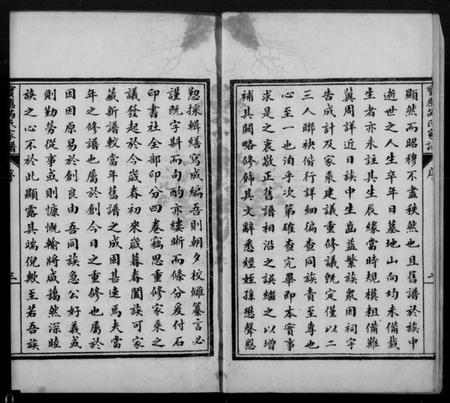 顯然而昭穆不盡秩然也且舊譜於族中
逝世之人生卒年日墓地山向均未備載
生者亦未註其生辰緣當時規模粗備難
冀周詳近日族中生齒益繁族眾因祠宇
告成計及家乘建議重修議既定僅以二
三人聯袂偕行詳細徧查同族責至專也
心至一也洎乎次第確查完畢即本實事
求是之衷敬正舊譜相沿之誤繼之以增
補其闕略修飾其文辭悉經姪孫懋聲愍
懃採輯繕寫成編吾則朝夕校讎纂言必
謹既字斟而句酌亦縷晰而條分爰付石
印書社全部印分四卷竊思重修家乘之
議發起於今歲春初來歲暮春闔族可家
藏新譜較當年舊譜之成固甚速焉夫當
年之修譜也屬於創今日之重修也屬於
因因原易於創良由吾同族急公好義或
則勤勞從事或則慷慨輸將咸藹然深睦
族之心不於此顯露其端倪歟至若吾族